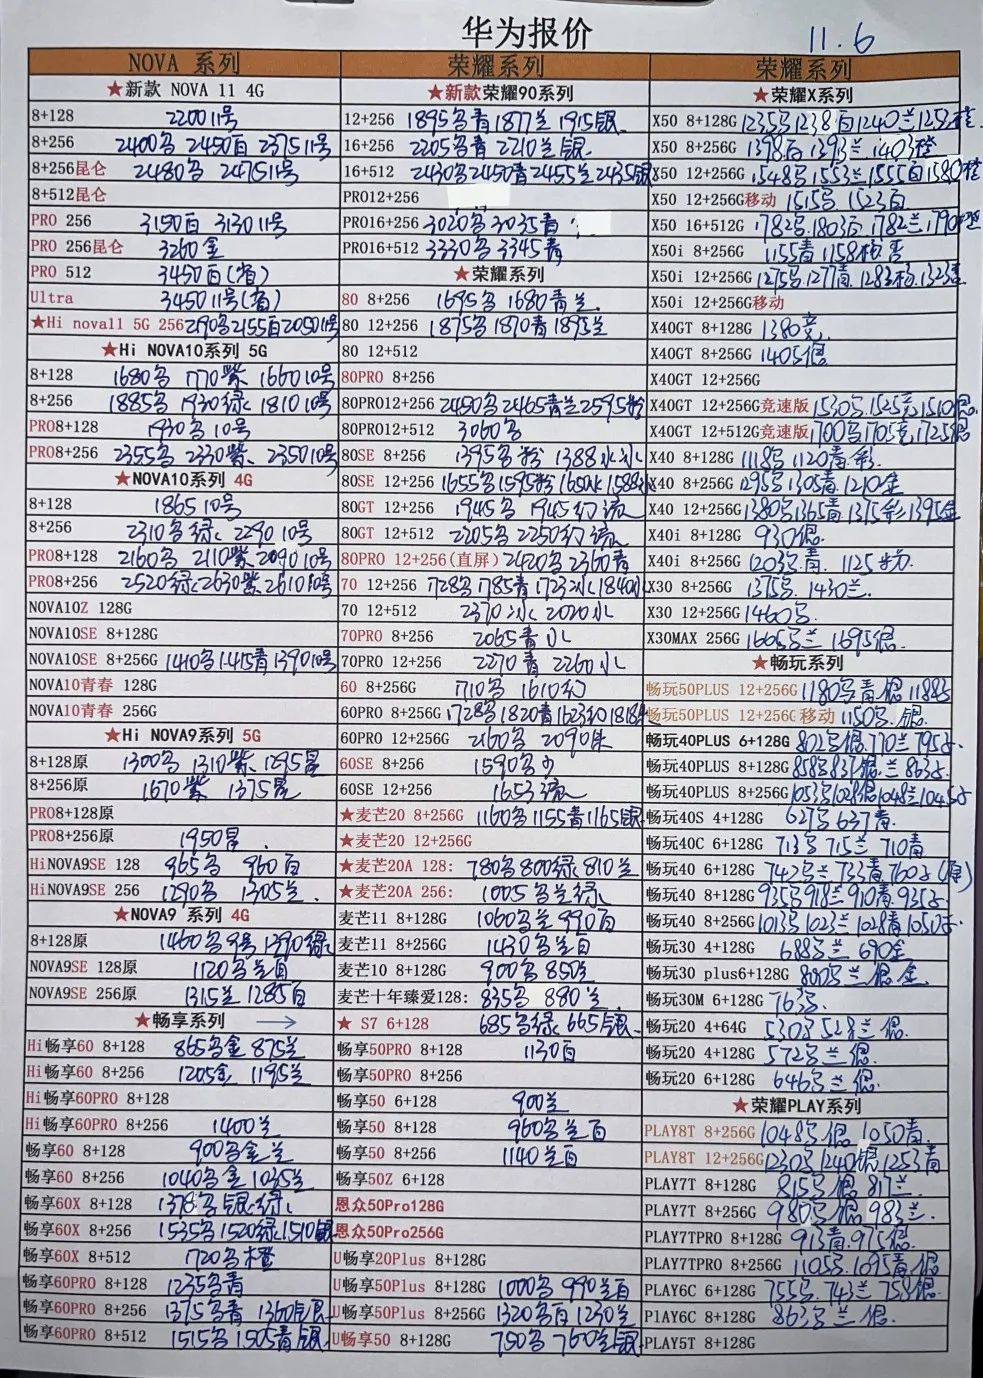 华为报价 11.6
NOVA 系列
★新款 NOVA 11 4G
8+128 2200 11号
8+256 2400名 2450百 2375 11号
8+256昆仑 2480名 2475 11号
8+512昆仑
PRO 256 3150百 3130 11号
PRO 256昆仑 3260金
PRO 512 3450百(省)
Ultra 3450 11号(省)
★Hi nova11 5G 256 2155百 2050 11号
★Hi NOVA10系列 5G
8+128 1680名 1770紫 1660 10号
8+256 1885名 1930绿 1810 10号
PRO8+128 1930名 10号
PRO8+256 2355名 2330紫 2350 10号
★NOVA10系列 4G
8+128 1865 10号
8+256 2310名绿 2290 10号
PRO8+128 2160名 2110紫 2090 10号
PRO8+256 2520绿 2630紫 2610 10号
NOVA10Z 128G
NOVA10SE 8+128G
NOVA10SE 8+256G 1410名 1415青 1390 10号
NOVA10青春 128G
NOVA10青春 256G
★Hi NOVA9系列 5G
8+128原 1300名 1310紫 1295昆
8+256原 1670紫 1375昆
PRO8+128原
PRO8+256原 1950昆
HiNOVA9SE 128 965名 960百
HiNOVA9SE 256 1290名 1305兰
★NOVA9 系列 4G
8+128原 1460名 9号 1390绿
NOVA9SE 128原 1120名兰百
NOVA9SE 256原 1315兰 1285百
★畅享系列 →
Hi畅享60 8+128 865名金 875兰
Hi畅享60 8+256 1205金 1195兰
Hi畅享60PRO 8+128
Hi畅享60PRO 8+256 1400兰
畅享60 8+128 900名金兰
畅享60 8+256 1040名金 1035兰
畅享60X 8+128 1378名银绿
畅享60X 8+256 1535名 1520绿 1510银
畅享60X 8+512 1720名橙
畅享60PRO 8+128 1235名青
畅享60PRO 8+256 1375名青 1360银
畅享60PRO 8+512 1515名 1505青银
荣耀系列
★新款荣耀90系列
12+256 1895名青 1877兰 1915银
16+256 2205名青 2210兰银
16+512 2430名 2450青 2455兰 2435银
PRO12+256
PRO16+256 3020名 3035青
PRO16+512 3330名 3345青
★荣耀系列
80 8+256 1695名 1680青兰
80 12+256 1875名 1870青 1895兰
80 12+512
80PRO 8+256
80PRO12+256 2450名 2465青兰 2595粉
80PRO12+512 3060名
80SE 8+256 1395名粉 1388水
80SE 12+256 1655名 1595粉 1650冰 1588水
80GT 12+256 1945名 1945幻流
80GT 12+512 2205名 2250幻流
80PRO 12+256(直屏) 2420名 2360青
70 12+256 1728名 1785青 1723冰 1840水
70 12+512 2370冰 2020水
70PRO 8+256 2065青水
70PRO 12+256 2270青 2260水
60 8+256G 1710名 1610幻
60PRO 8+256G 1728名 1820青 1623幻 1818
60PRO 12+256G 2160名 2090
60SE 8+256 1590名
60SE 12+256 1653流
★麦芒20 8+256G 1160名 1155青 1165银
★麦芒20 12+256G
★麦芒20A 128: 780名 800绿 810兰
★麦芒20A 256: 1005名兰绿
麦芒11 8+128G 1060名兰 990百
麦芒11 8+256G 1430名兰百
麦芒10 8+128G 900名 850兰
麦芒十年臻爱128: 835名 880兰
★ S7 6+128 685名绿 665银
畅享50PRO 8+128 1130百
畅享50PRO 8+256
畅享50 6+128 900兰
畅享50 8+128 960名兰百
畅享50 8+256 1140兰百
畅享50Z 6+128
恩众50Pro128G
恩众50Pro256G
U畅享20Plus 8+128G
U畅享50Plus 8+128G 1000名 990兰百
U畅享50Plus 8+256G 1320名百 1230兰
U畅享50 8+128G 750名 760兰银
荣耀系列
★荣耀X系列
X50 8+128G 1235名 1238百 1240兰 125橙
X50 8+256G 1398百 1393兰 1403橙
X50 12+256G 1548名 1553兰 1555百 1580橙
X50 12+256G移动 1515名 1523百
X50 16+512G 1782名 1803百 1782兰 1790橙
X50i 8+256G 1155青 1158
X50i 12+256G 1275名 1277青 1283 1323
X50i 12+256G移动
X40GT 8+128G 1380竞
X40GT 8+256G 1405银
X40GT 12+256G
X40GT 12+256G竞速版 1530名 1525竞 1510银
X40GT 12+512G竞速版 1700名 1705竞 1725银
X40 8+128G 1118名 1120青彩
X40 8+256G 1295名 1305青 1210金
X40 12+256G 1380名 1365青 1375彩 1395金
X40i 8+128G 930银
X40i 8+256G 1203名青 1125
X30 8+256G 1375名 1430兰
X30 12+256G 1460名
X30MAX 256G 1665名兰 1695银
★畅玩系列
畅玩50PLUS 12+256G 1180名青银 1188
畅玩50PLUS 12+256G 移动 1150名银
畅玩40PLUS 6+128G 802名银 770兰 795
畅玩40PLUS 8+128G 858名 837银兰 863
畅玩40PLUS 8+256G 1053名 1028银 1048兰 1045
畅玩40S 4+128G 627名 637青
畅玩40C 6+128G 713名 715兰 710青
畅玩40 6+128G 742名兰 733青 760(原)
畅玩40 8+128G 935名 918兰 910青 935
畅玩40 8+256G 1013名 1023兰 1028青 1050
畅玩30 4+128G 688名兰 690金
畅玩30 plus6+128G 名兰银金
畅玩30M 6+128G 763名
畅玩20 4+64G 530名 528兰银
畅玩20 4+128G 572名兰银
畅玩20 6+128G 646名兰银
★荣耀PLAY系列
PLAY8T 8+256G 1048名银 1050青
PLAY8T 12+256G 1230名 1240银 1253青
PLAY7T 8+128G 815名银 817兰
PLAY7T 8+256G 980名银 983兰
PLAY7TPRO 8+128G 913青 975银
PLAY7TPRO 8+256G 1105名 1095青银
PLAY6C 6+128G 755名 743兰 758银
PlAY6C 8+128G 863名兰银
PLAY5T 8+128G